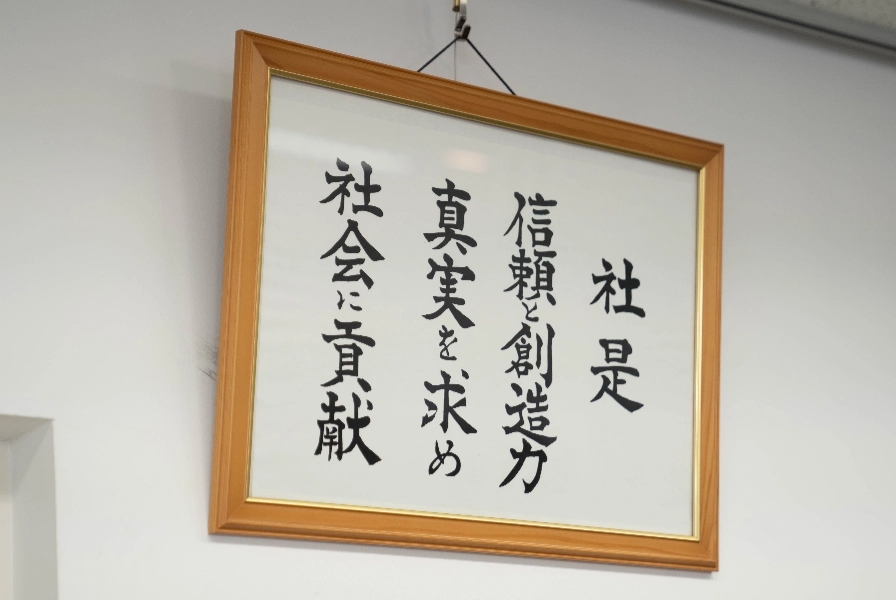 社是
信頼と創造力
真実を求め
社会に貢献